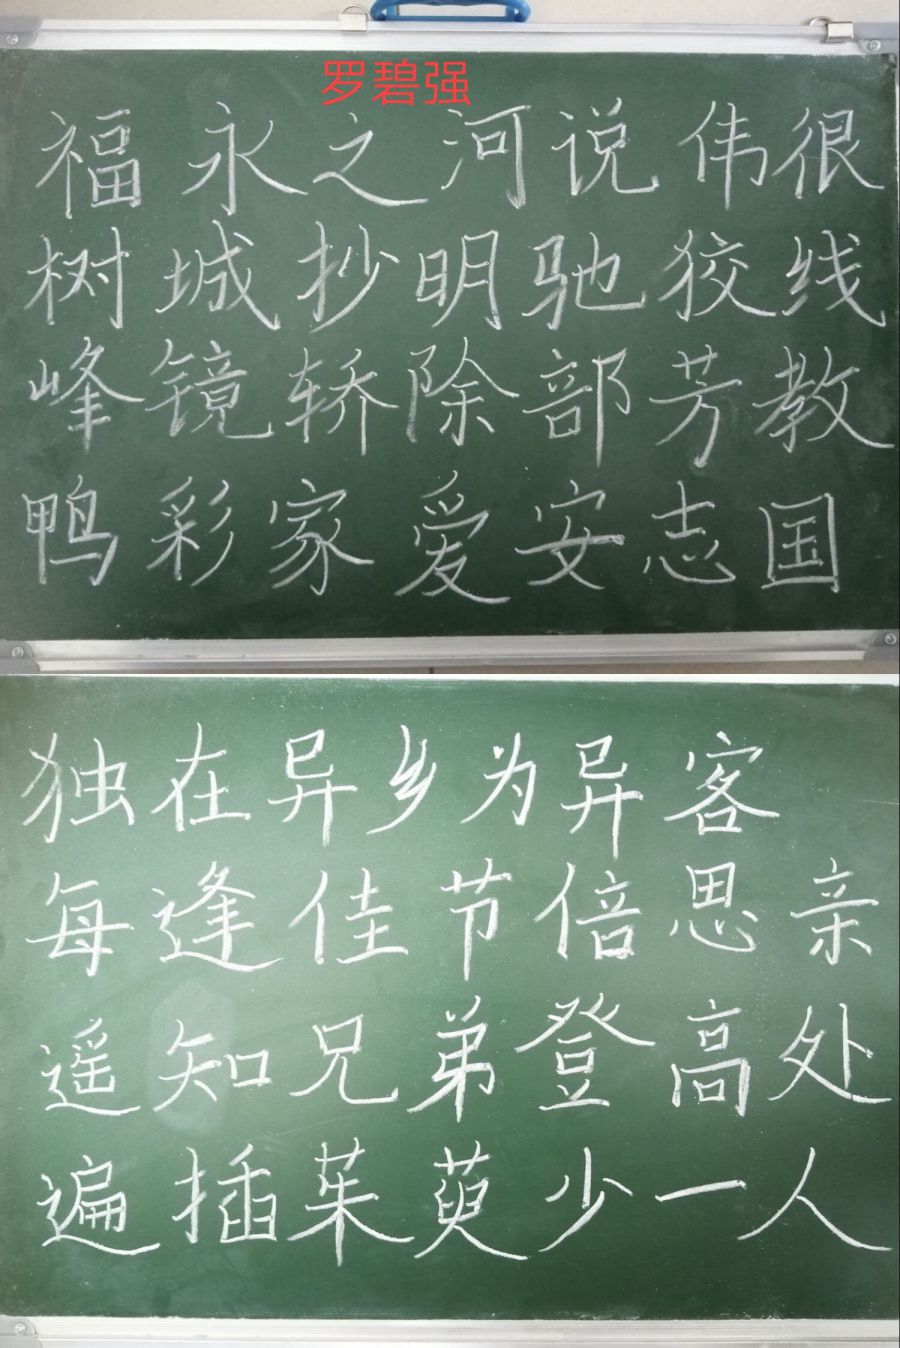 罗碧强
福永之河说伟很
树城抄明驰狡线
峰镜轿除部芳教
鸭彩家爱安志国
独在异乡为异客
每逢佳节倍思亲
遥知兄弟登高处
遍插茱萸少一人